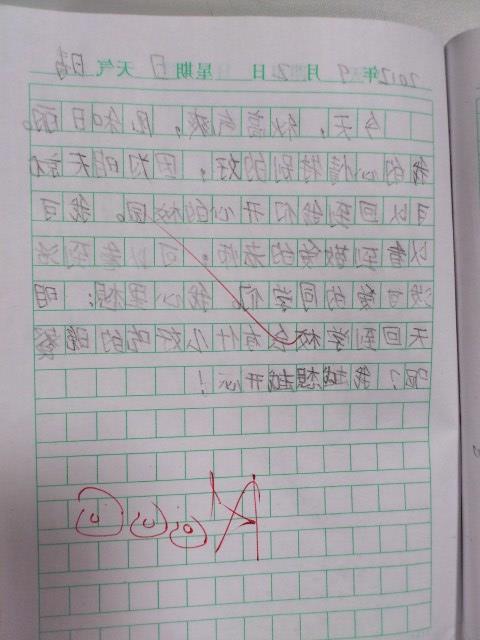 2012年9月2日 星期日 天气 晴
今天，秋高气爽，风和日丽。
我的心情特别的好，因为明天就
可以回到我们开心的校园。我可
以看到敬爱的老师，可以看到活
泼可爱的同学们。我心里想：明
天回到学校会有什么好吃的晚餐
呢？我越想越开心！